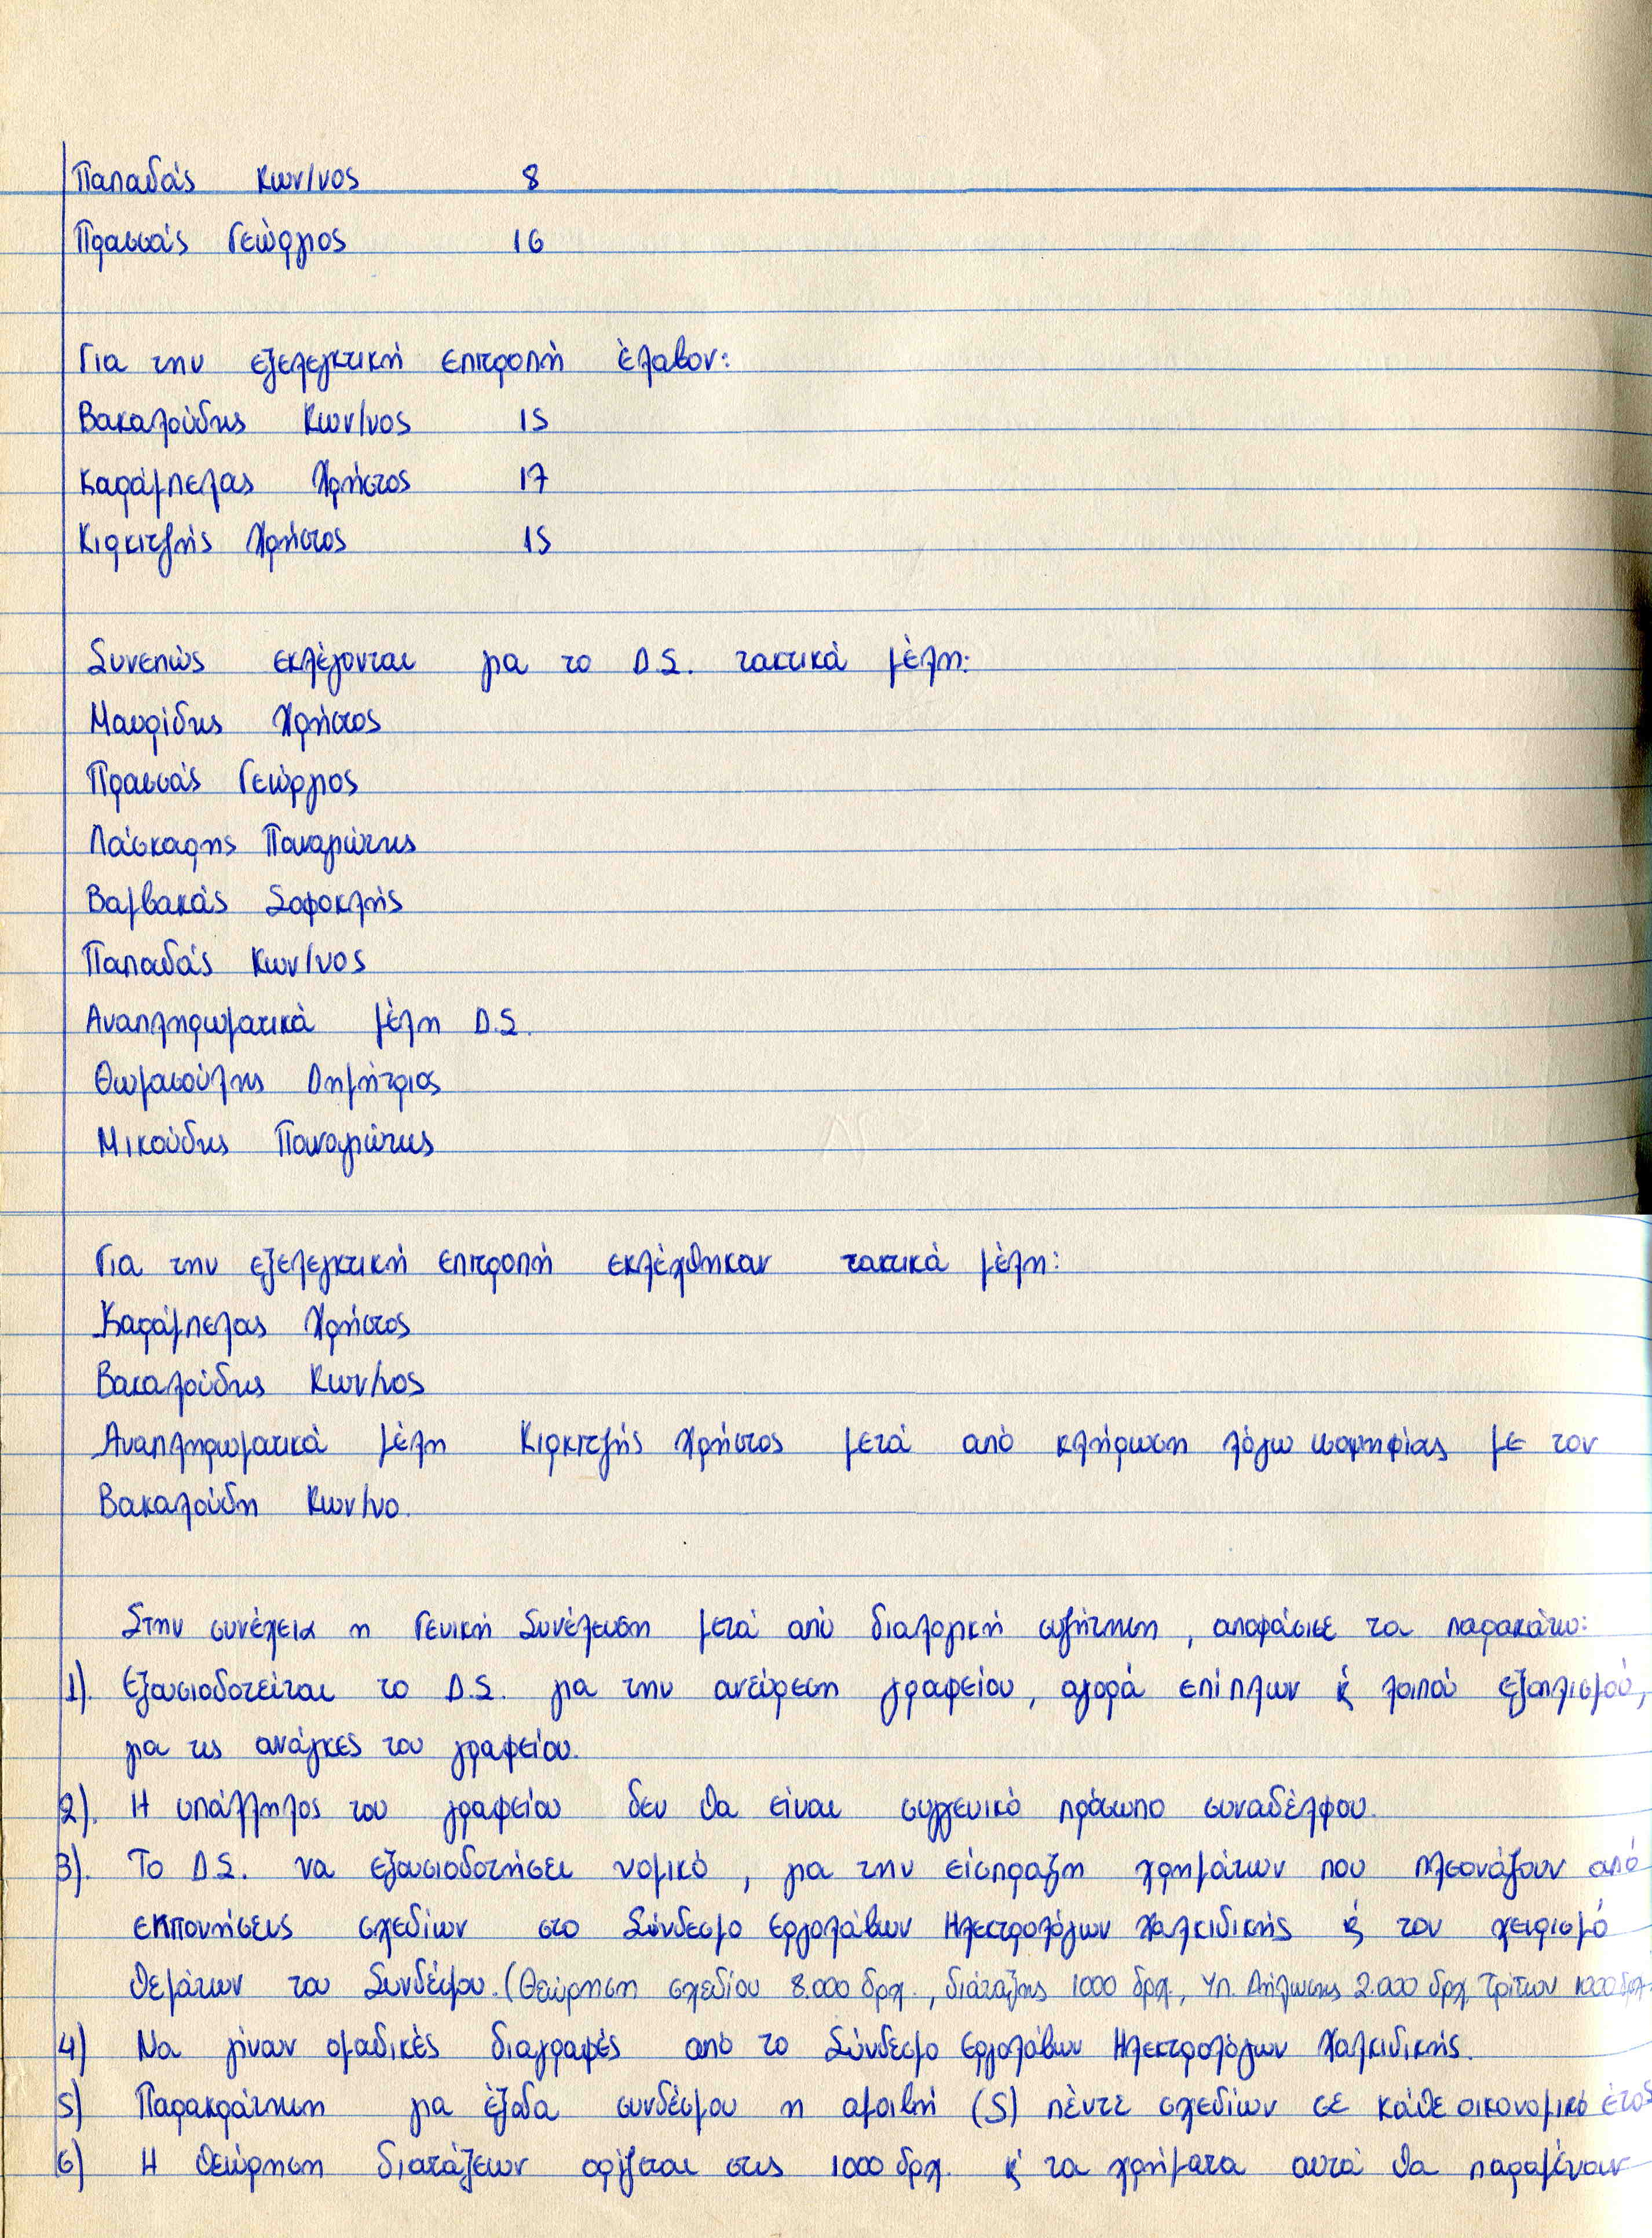 Παπαδάς Κων/νος 8
Πρασσάς Γεώργιος 16
Για την εξελεγκτική επιτροπή έλαβον:
Βακαλούδης Κων/νος 15
Καράμπελας Χρήστος 17
Κιρκιτζής Χρήστος 15
Συνεπώς εκλέγονται για το Δ.Σ. τακτικά μέλη:
Μαυρίδης Χρήστος
Πρασσάς Γεώργιος
Λάσκαρης Παναγιώτης
Βαμβακάς Σοφοκλής
Παπαδάς Κων/νος
Αναπληρωματικά μέλη Δ.Σ.
Θωμασούλης Δημήτριος
Μικούδης Παναγιώτης
Για την εξελεγκτική επιτροπή εκλέχθηκαν τακτικά μέλη:
Καράμπελας Χρήστος
Βακαλούδης Κων/νος
Αναπληρωματικά μέλη Κιρκιτζής Χρήστος μετά από κλήρωση λόγω ισοψηφίας με τον
Βακαλούδη Κων/νο.
Στην συνέχεια η Γενική Συνέλευση μετά από διαλογική συζήτηση, αποφάσισε τα παρακάτω:
1). Εξουσιοδοτείται το Δ.Σ. για την ανεύρεση γραφείου, αγορά επίπλων & λοιπού εξοπλισμού,
για τις ανάγκες του γραφείου.
2). Η υπάλληλος του γραφείου δεν θα είναι συγγενικό πρόσωπο συναδέλφου.
3). Το Δ.Σ. να εξουσιοδοτήσει νομικό, για την είσπραξη χρημάτων που πλεονάζουν από
εκπονήσεις σχεδίων στο Σύνδεσμο Εργολάβων Ηλεκτρολόγων Χαλκιδικής & τον χειρισμό
θεμάτων του Συνδέσμου. (Θεώρηση σχεδίου 8.000 δρχ., διάταξης 1000 δρχ., Υπ. Δήλωσης 2.000 δρχ, Τρίτων 1000 δρχ.
4) Να γίνουν ομαδικές διαγραφές από το Σύνδεσμο Εργολάβων Ηλεκτρολόγων Χαλκιδικής.
5) Παρακράτηση για έξοδα συνδέσμου η αμοιβή (5) πέντε σχεδίων σε κάθε οικονομικό έτος
6) Η θεώρηση διατάξεων ορίζεται στις 1000 δρχ. & τα χρήματα αυτά θα παραμένουν